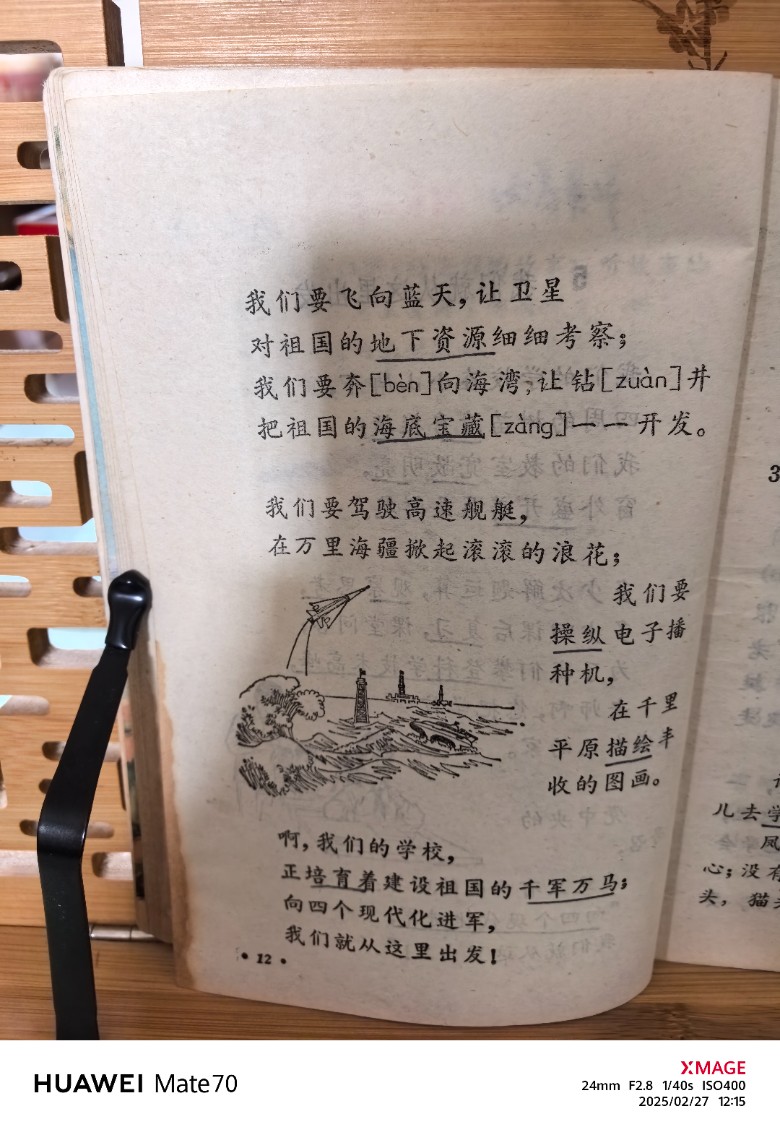 我们要飞向蓝天，让卫星
对祖国的地下资源细细考察；
我们要奔[bèn]向海湾，让钻[zuàn]井
把祖国的海底宝藏[zàng]一一开发。
我们要驾驶高速舰艇，
在万里海疆掀起滚滚的浪花；
我们要
操纵电子播
种机，
在千里
平原描绘丰
收的图画。
啊，我们的学校，
正培育着建设祖国的千军万马；
向四个现代化进军，
我们就从这里出发！
• 12 •
3
儿去学
凤
心；没有
头，猫头
HUAWEI Mate70
XMAGE
24mm F2.8 1/40s ISO400
2025/02/27 12:15